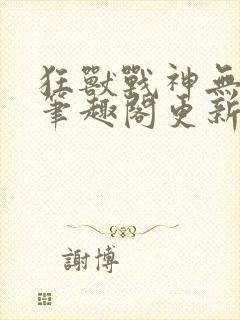 狂獸戰神無
筆趣閣更新
謝博